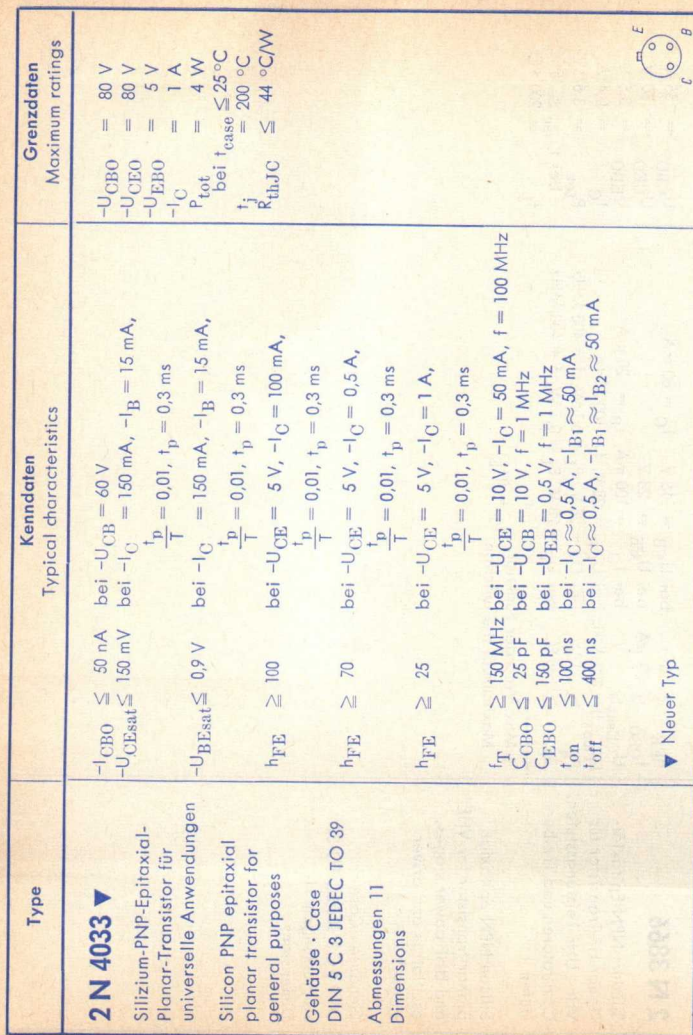 Type
Kenndaten
Typical characteristics
Grenzdaten
Maximum ratings
2 N 4033 ▼
Silizium-PNP-Epitaxial-
Planar-Transistor für
universelle Anwendungen
Silicon PNP epitaxial
planar transistor for
general purposes
Gehäuse · Case
DIN 5 C 3 JEDEC TO 39
Abmessungen 11
Dimensions
-I_CBO ≦ 50 nA bei -U_CB = 60 V
-U_CEsat ≦ 150 mV bei -I_C = 150 mA, -I_B = 15 mA,
t_p/T = 0,01, t_p = 0,3 ms
-U_BEsat ≦ 0,9 V bei -I_C = 150 mA, -I_B = 15 mA,
t_p/T = 0,01, t_p = 0,3 ms
h_FE ≧ 100 bei -U_CE = 5 V, -I_C = 100 mA,
t_p/T = 0,01, t_p = 0,3 ms
h_FE ≧ 70 bei -U_CE = 5 V, -I_C = 0,5 A,
t_p/T = 0,01, t_p = 0,3 ms
h_FE ≧ 25 bei -U_CE = 5 V, -I_C = 1 A,
t_p/T = 0,01, t_p = 0,3 ms
f_T ≧ 150 MHz bei -U_CE = 10 V, -I_C = 50 mA, f = 100 MHz
C_CBO ≦ 25 pF bei -U_CB = 10 V, f = 1 MHz
C_EBO ≦ 150 pF bei -U_EB = 0,5 V, f = 1 MHz
t_on ≦ 100 ns bei -I_C ≈ 0,5 A, -I_B1 ≈ 50 mA
t_off ≦ 400 ns bei -I_C ≈ 0,5 A, -I_B1 ≈ I_B2 ≈ 50 mA
▼ Neuer Typ
-U_CBO = 80 V
-U_CEO = 80 V
-U_EBO = 5 V
-I_C = 1 A
P_tot = 4 W
bei t_case ≦ 25 °C
t_j = 200 °C
R_thJC ≦ 44 °C/W
E
C
B